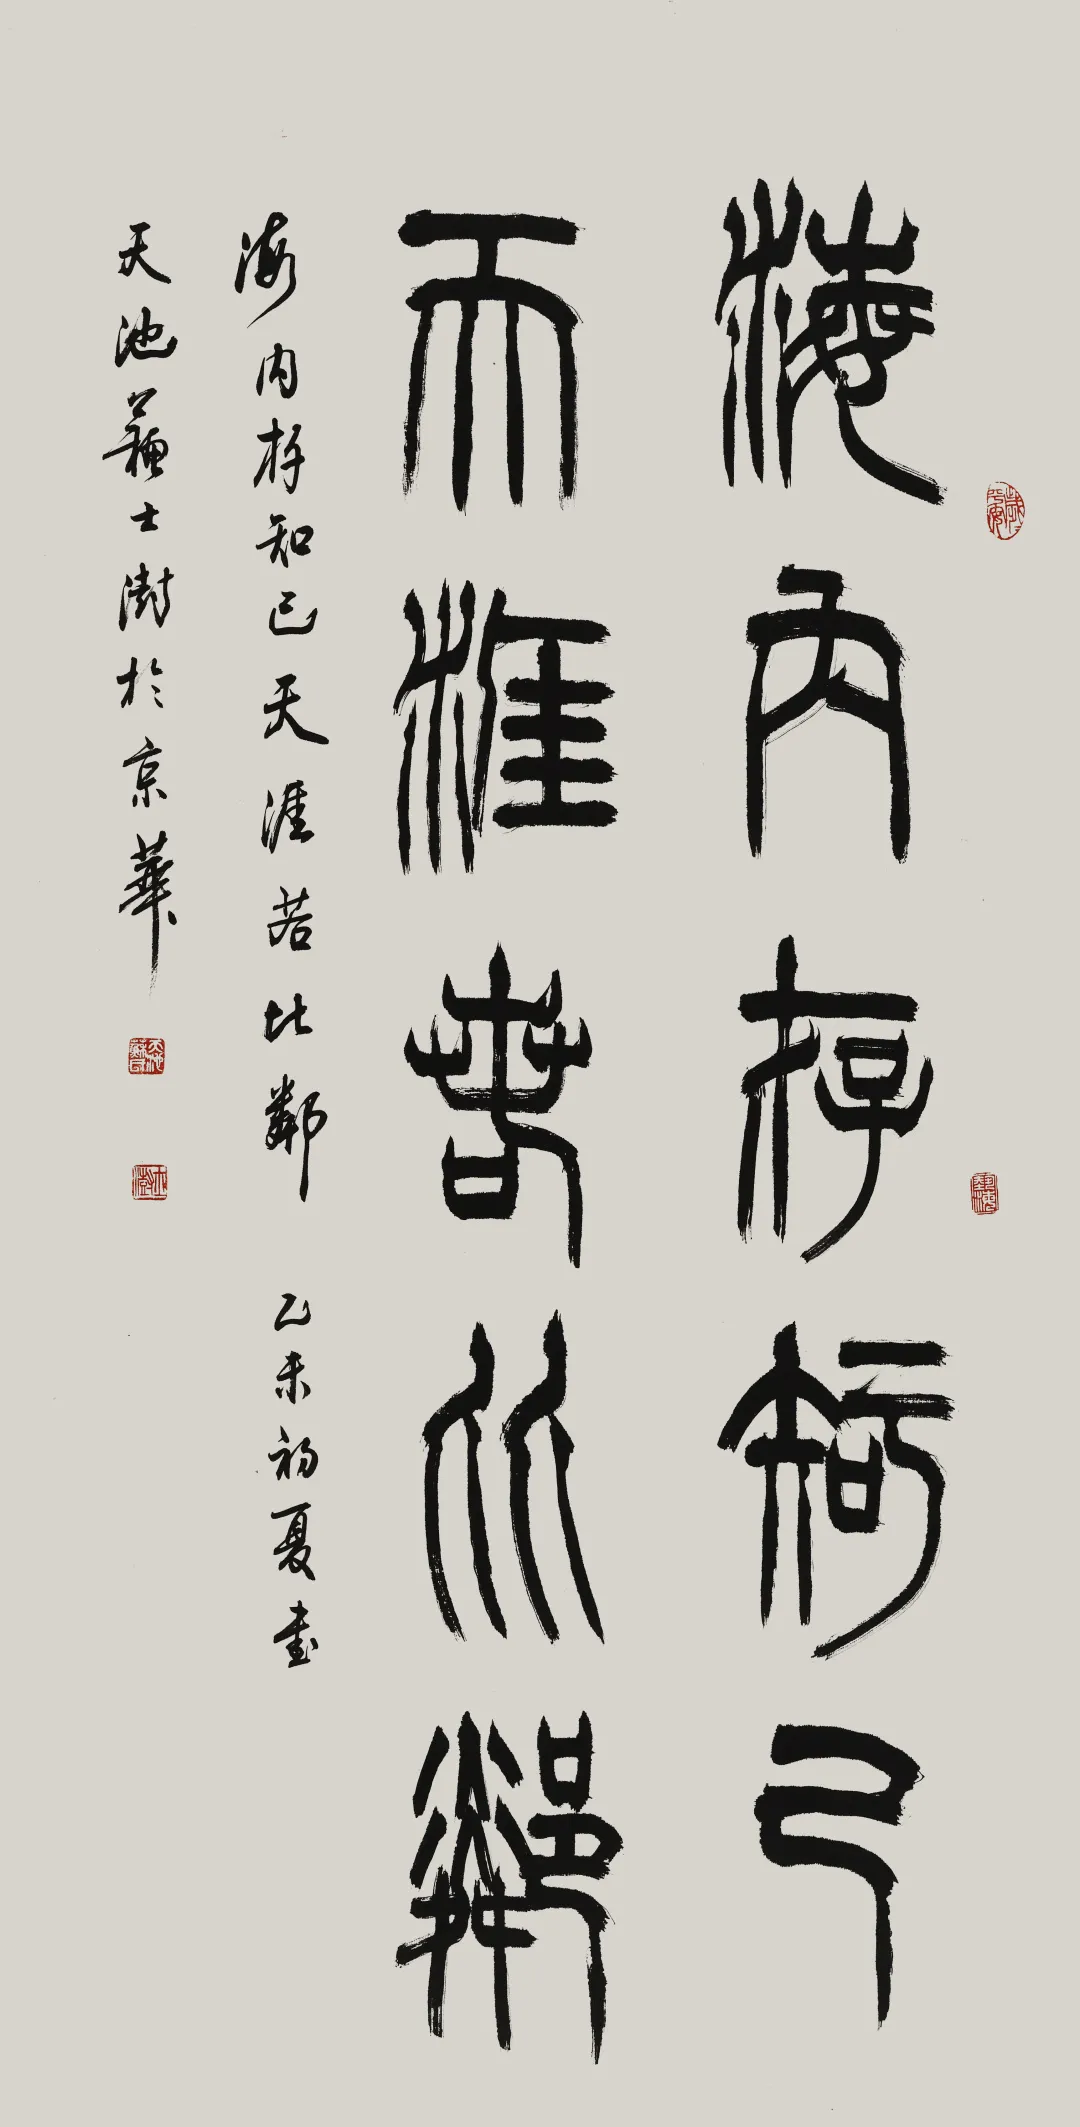 海内存知己
天涯若比鄰
海内存知己天涯若比鄰 乙未初夏書
天池蘇士澍於京華